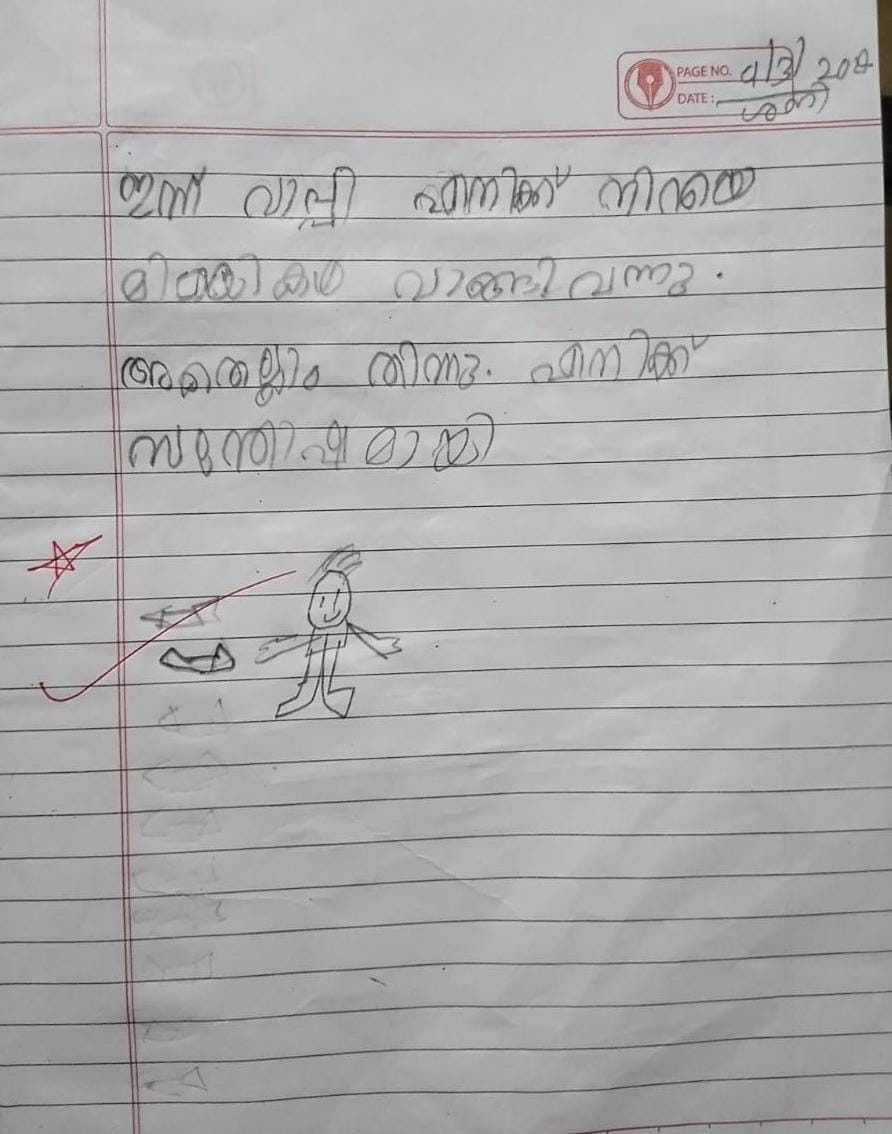 PAGE NO.
DATE:
ശനി
ഇന്ന് വാപ്പി എനിക്ക് നിറയെ
മിഠായികൾ വാങ്ങി വന്നു.
അതെല്ലാം തിന്നു. എനിക്ക്
സന്തോഷമായി